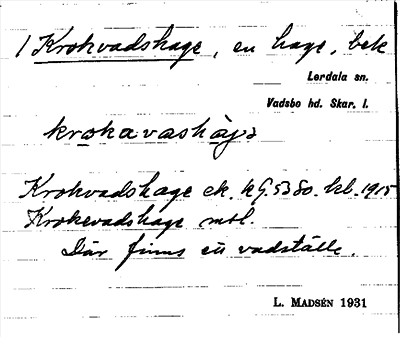 1 Krokvadshage, en hage, bek
Lerdala sn.
Vadsbo hd. Skar. l.
krokavashàgɜ
Krokvadshage ek. kG. 5380. kl. 1915
Krokevadshage mtl.
Där finns ett vadställe.
L. MADSÉN 1931